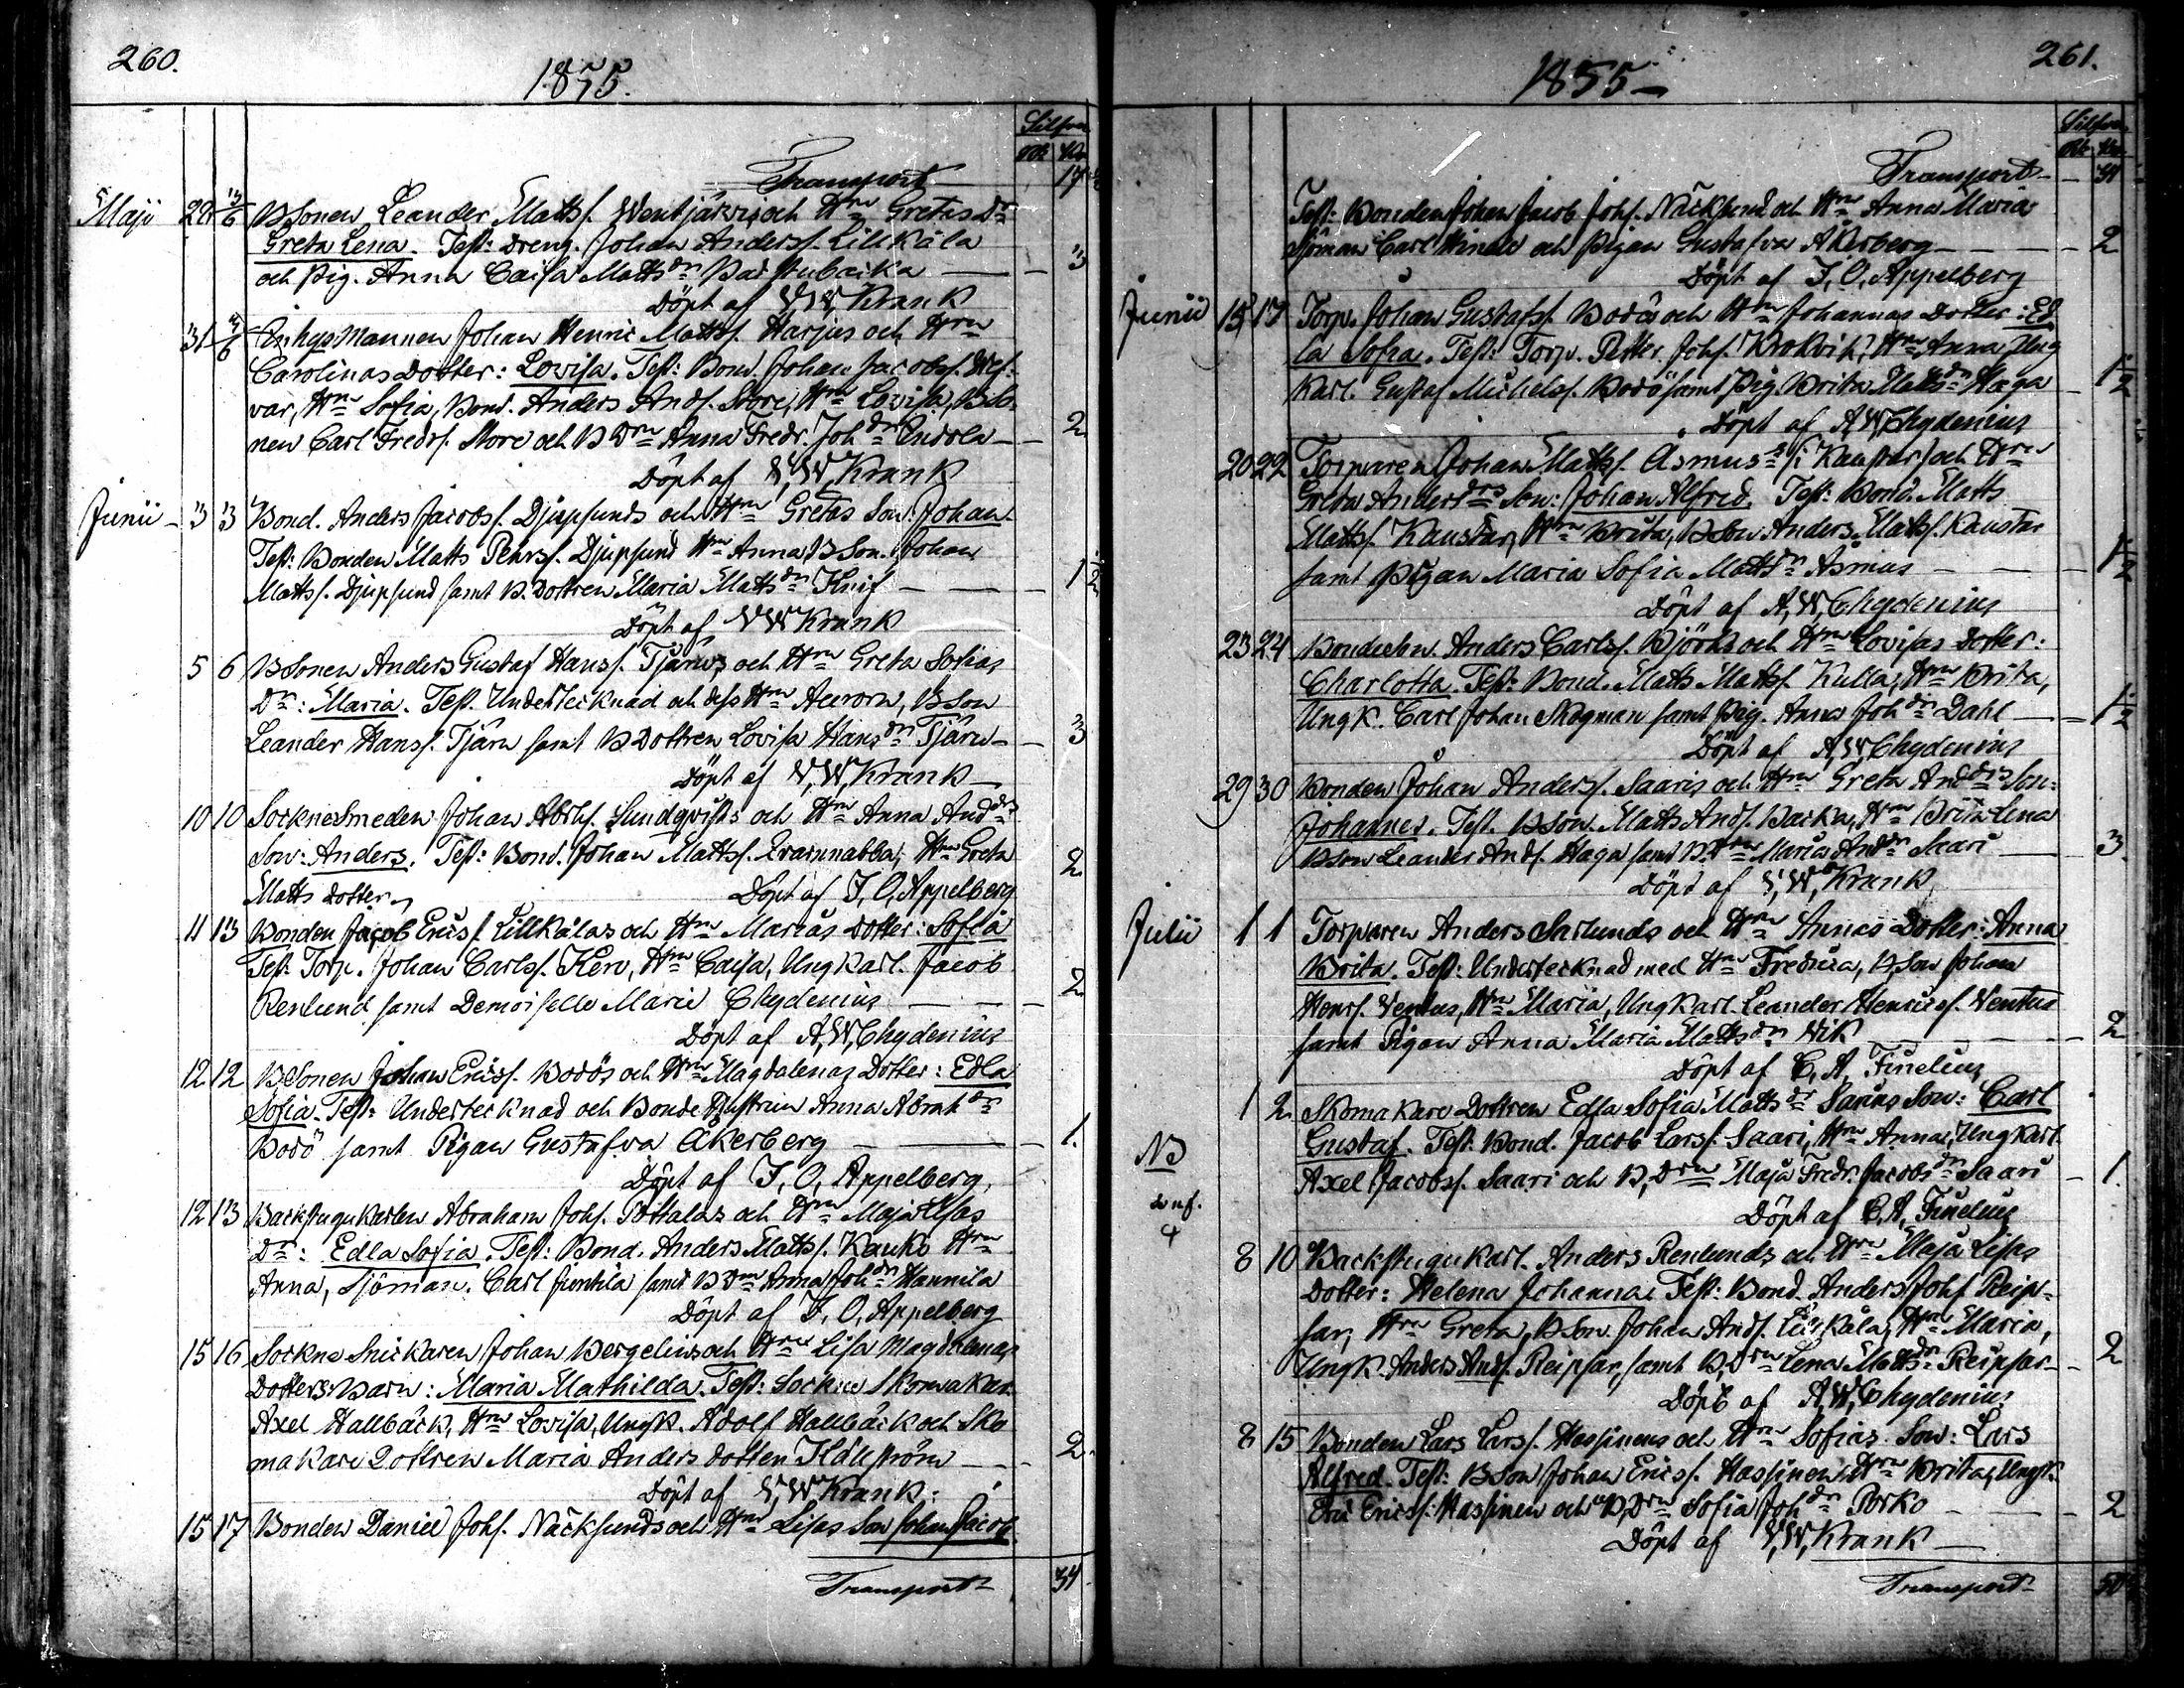 260.
1855.
Silfver
Rb Kop
Transport 17
Maji 29 13/6 BSonen Leander Mattsf. Wentjärwis och Hru Gretas Dr
Greta Lena. Test: Dreng. Johan Andersf. Lillkåla
och Pig. Anna Caisa Mattsdr Backubacka — 3
Döpt af V,W,Krank
31 3/6 Enkgsmannen Johan Henric Mattsf. Harjus och Hru
Carolinas Dotter: Lovisa. Test: Bond. Johan Jacobsf. Wes-
var, Hru Sofia, Bond. Anders Andf. Store, Hru Lovisa, BSo-
nen Carl Fredrf. Store och B Drn Anna Fredr. Johdr Endola — 2
Döpt af V,W,Krank
Junii — 3 3 Bond. Anders Jacobsf. Djupsunds och Hru Gretas Son: Johan.
Test: Bonden Matts Pehrsf. Djupsund Hru Anna, BSon. Johan
Mattsf. Djupsund samt B. Dottren Maria Mattsdr Knif — 1 1/2
Döpt af V W Krank
5 6 BSonen Anders Gustaf Hansf. Tjärus, och Hru Greta Sofias
Dr: Maria. Test. Undertecknad och dess Hru Aurora, BSon
Leander Hansf. Tjäru samt B Dottren Lovisa Hansdr Tjäru — 3
Döpt af V,W,Krank
10 10 Sockne Smeden Johan Abrhf. Sundqvists och Hru Anna Anddrs
Son: Anders. Test: Bond. Johan Mattsf. Kvarnabba, Hru Greta — 2
Matts dotter, Döpt af J,O,Appelberg
11 13 Bonden Jacob Ericsf. Lillkålas och Hru Marias Dotter: Sofia
Test: Torp. Johan Carlsf. Kero, Hru Caisa, Ungkarl. Jacob
Renlund samt Demoiselle Marie Chydenius — 2
Döpt af A,W,Chydenius
12 12 BSonen Johan Ericsf. Bodös och Hru Magdalenas Dotter: Edla
Sofia. Test: Undertecknad och Bonde Hustrun Anna Abrahdr
Bodö samt Pigan Gustafva Åkerberg — 1.
Döpt af J,O,Appelberg.
12 13 Backstugukarlen Abraham Johf. Pottalas och Hru Maja Lisas
Dr: Edla Sofia. Test: Bond. Anders Mattsf. Kauko Hru
Anna, Sjöman. Carl Junttila samt B Drn Anna Johdr Hannila
Döpt af J,O,Appelberg
15 16 Sockne Snickaren Johan Bergelins och Hru Lisa Magdalenas
Dotters Barn: Maria Mathilda. Test: Sockne Skomakar
Axel Hallbäck, Hru Lovisa, Ungk. Adolf Hallbäck och Sko
makare Dottren Maria Anders dotter Hällström — 2.
Döpt af V,W Krank.
15 17 Bonden Daniel Johf. Näcksunds och Hru Lisas Son Johan Jacob
Transport 34
261.
1855—
Silfver
Rb Kop
Transport — 34
Test: Bonden Johan Jacob Johf. Näcksund och Hru Anna Maria
Sjöman Carl Hinall och Pigan Gustafva Akerberg — 2
Döpt af J,O,Appelberg
Junii 15 17 Torp. Johan Gustafsf. Bodös och Hru Johannas Dotter: Ed
la Sofia. Test: Torp. Petter Johf. Krokvik, Hru Anna Ung
karl. Gustaf Michelsf. Bodö samt Pig. Brita Mattsdr Haga — 1 1/2
Döpt af A W Chydenius
20 22 Torparen Johan Mattsf. Asmus's (i Kaustar) och Hru
Greta Andersdrs Son: Johan Alfred. Test: Bond. Matts
Mattsf. Kaustar, Hru Brita, BSon Anders Mattsf. Kaustar
samt Pigan Maria Sofia Mattsdr Åsmus — 1 1/2
Döpt af A,W,Chydenius
23 24 Bondeson. Anders Carlsf. Björks och Hru Lovisas Dotter:
Charlotta. Test: Bond. Matts Mattsf. Kulla, Hru Brita,
Ungk. Carl Johan Skogman samt Pig. Anna Johdr Dahl — 1 1/2
Döpt af A W Chydenius
29 30 Bonden Johan Andersf. Saaris och Hru Greta Anddrs Son:
Johannes. Test. BSon. Matts Andf. Backa, Hru Brita Lena
BSon Leander Andf. Haga samt B. Drn Maria Anddr Saari — 3
Döpt af V,W,Krank
Julii 1 1 Torparen Anders Sarlunds och Hru Annas Dotter: Anna
Brita. Test: Undertecknad med Hru Fredrica, BSon Johan
Henrsf. Ventus, Hru Maria, Ungkarl. Leander Henricsf. Ventus
samt Pigan Anna Maria Mattsdr Wik — 2
Döpt af C, A, Finelius
1 2 Skomakare Dottren Edla Sofia Mattsdr Sauns Son: Carl
NB Gustaf. Test: Bond. Jacob Larsf. Saari, Hru Anna, Ungkarl
Axel Jacobsf. Saari och B, Drn Maja Fredr. Jacobsdr Saari — 1.
Döpt af C,A, Finelius
8 10 Backstugukarl. Anders Renlunds och Hru Maja Lisas
Dotter: Helena Johanna. Test: Bond. Anders Johf Reip-
sar, Hru Greta, BSon. Johan Andf. Lillkåla, Hru Maria,
Ungk. Anders Andf. Reipsar, samt B, Drn Lena Mattsdr Reipsar — 2
Döpt af A,W,Chydenius
8 15 Bonden Lars Larsf. Hassinens och Hru Sofias Son: Lars
Alfred. Test: BSon Johan Ericsf. Hassinen, Hru Brita, Ungk.
Eric Ericsf. Hassinen och B, Drn Sofia Johdr Porko — 2
Döpt af V,W,Krank
Transport 50